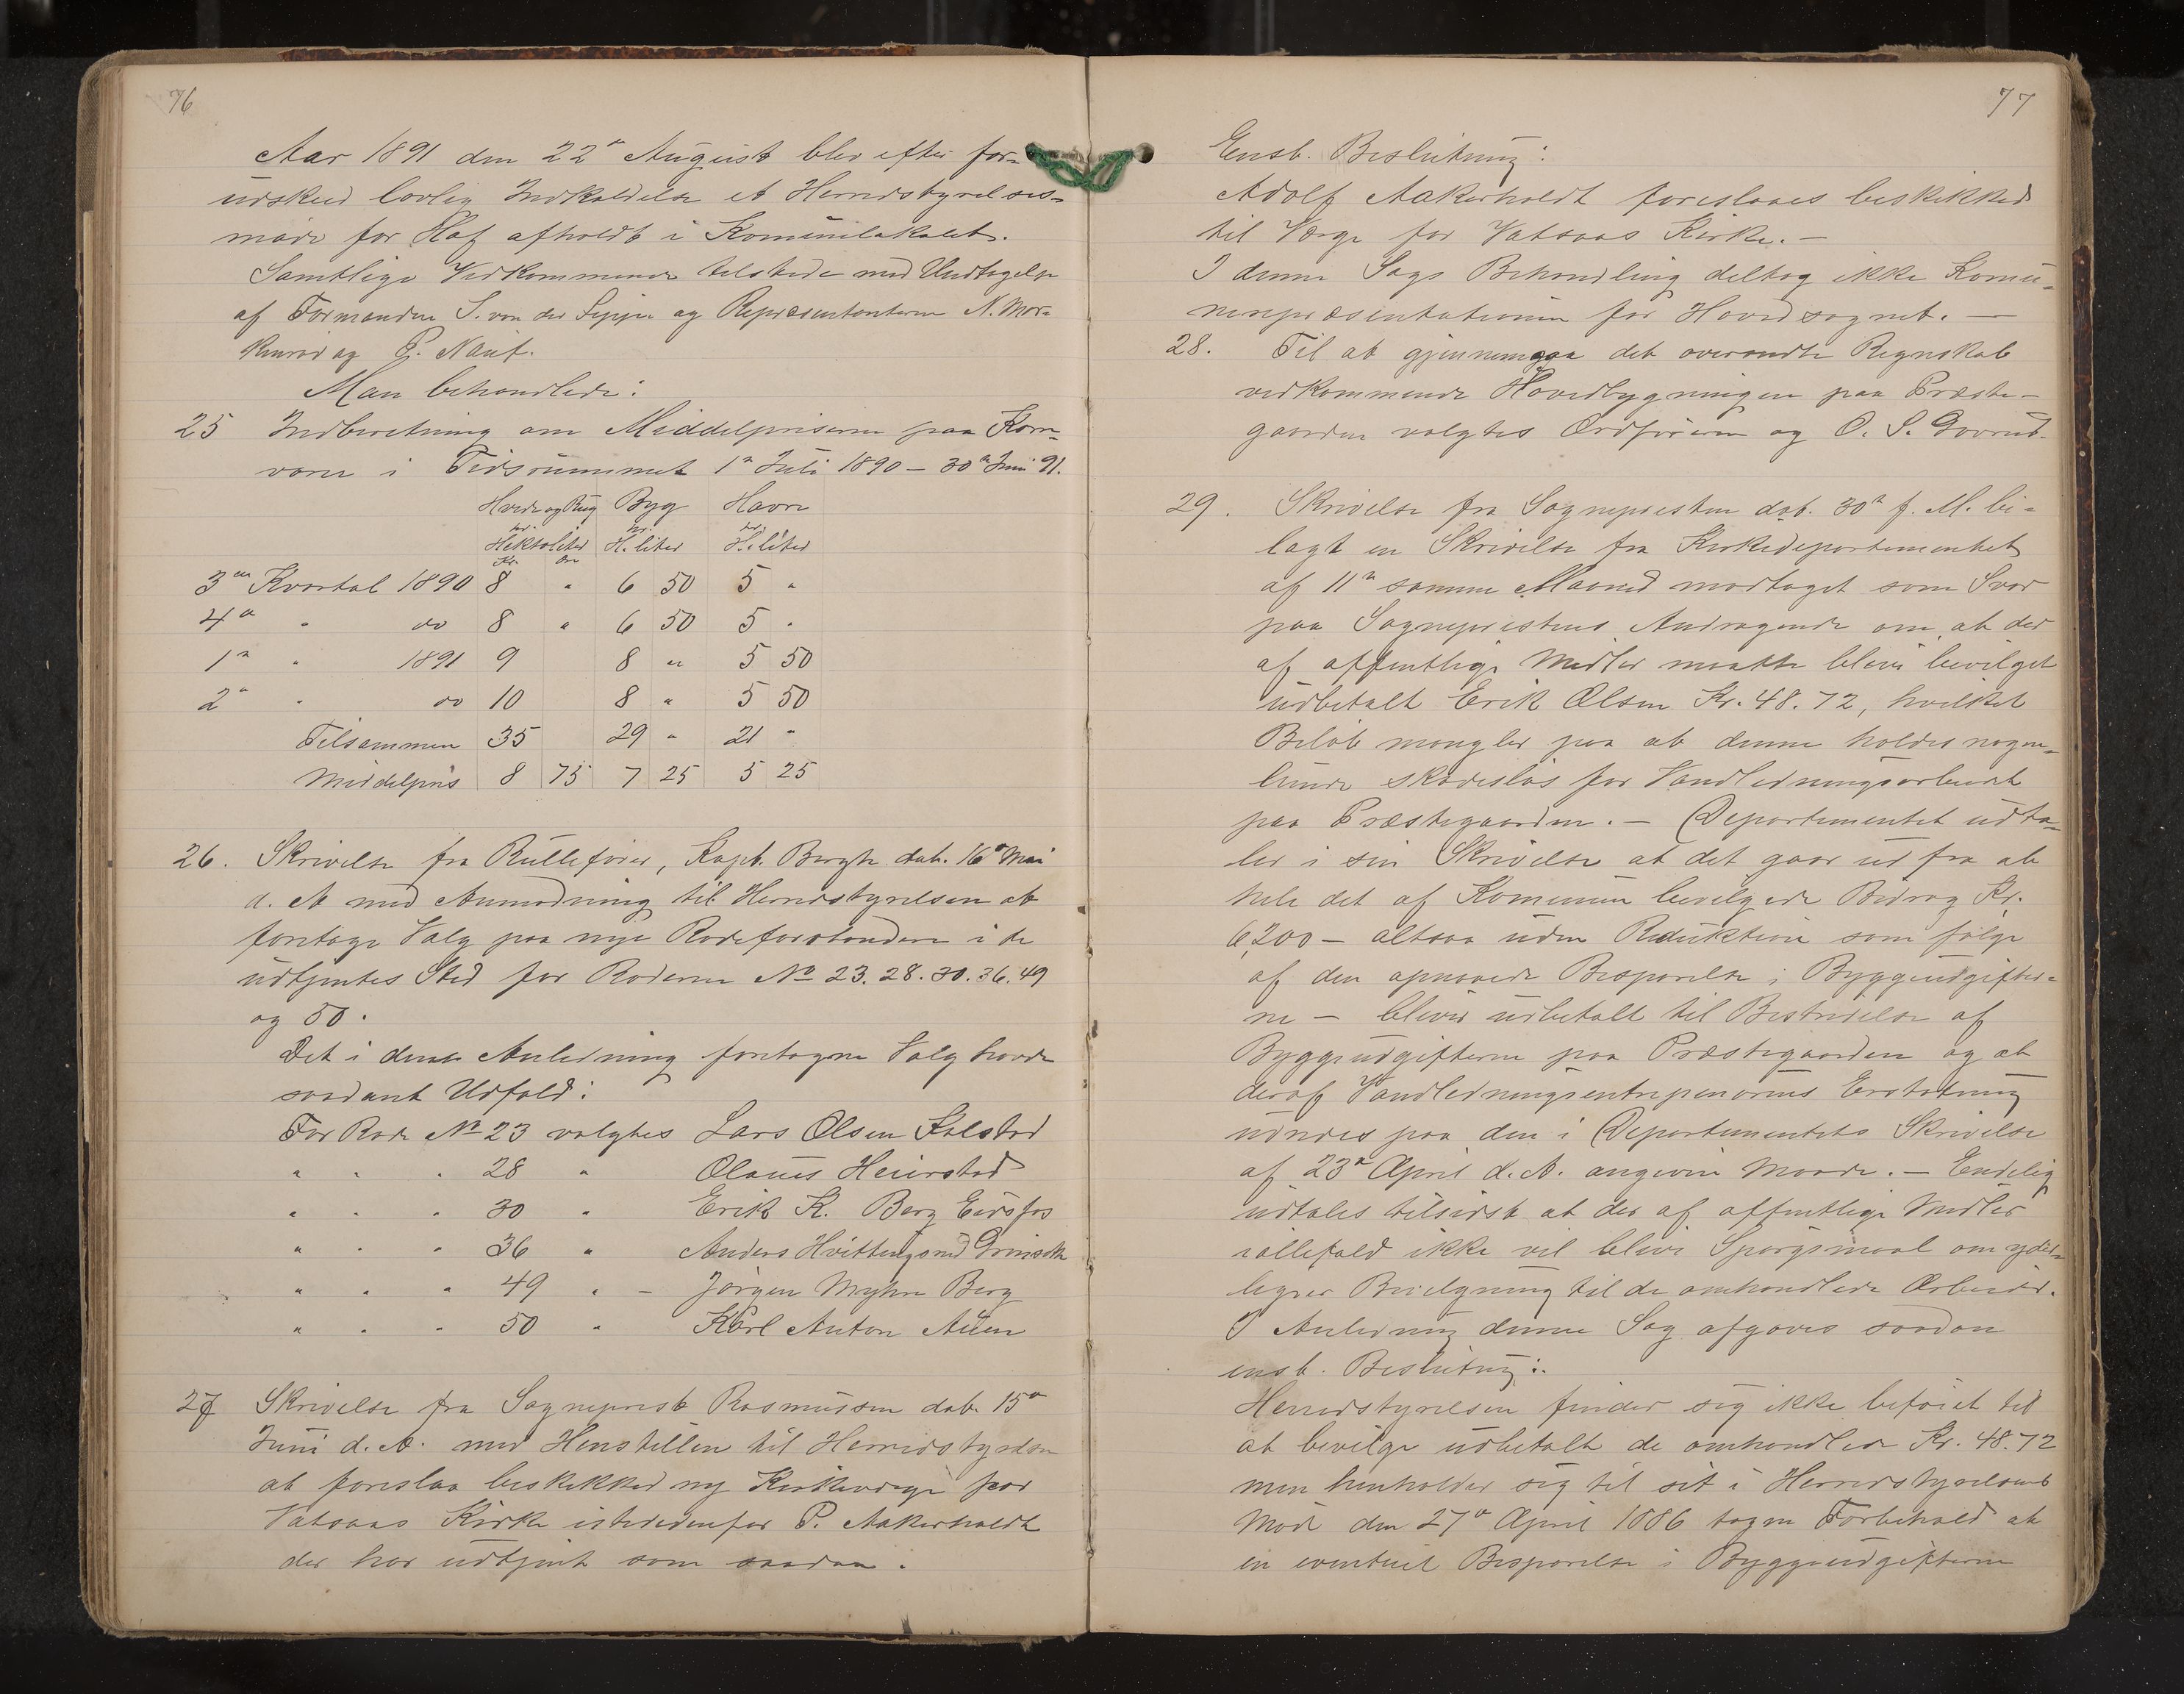 76
Aar 1891 den 22de August blev efter for-
udskeed lovlig Indkaldelse et Herredstyrelses-
møde for Hof afholdt i Komunelokalet.
Samtlige Vedkommende tilstede med Undtagelse
af Formanden S. von der Lippe og Repræsentanterne N. Mor-
kenrød og P. Næus.
Man behandlede:
25 Indberetning om Middelpriserne paa Korn-
varer i Tidsrummet 1ste Juli 1890 – 30te Juni 91.
Hvede og Rug Byg Havre
pr. Hektoliter pr. H.liter pr. H.liter
Kr. Øre
3die Kvartal 1890 8 " 6 50 5 "
4de " do 8 " 6 50 5 "
1ste " 1891 9 8 " 5 50
2det " do 10 8 " 5 50
Tilsammen 35 29 " 21 "
Middelpris 8 75 7 25 5 25
26. Skrivelse fra Rullefører, Kapt. Bergh dat. 16de Mai
d. A. med Anmodning til Herredstyrelsen at
foretage Valg paa nye Rodeforstandere i de
udtjentes Sted for Roderne No 23. 28. 30. 36. 49
og 50.
Det i denne Anledning foretagne Valg havde
saadant Udfald:
For Rode No 23 valgtes Lars Olsen Kolstad
" " " 28 " Olaus Heierstad
" " " 30 " Erik K. Berg Eidsfos
" " " 36 " Anders Hvittingsrud
" " " 49 " – Jørgen Myhre Berg
" " " 50 " Karl Anton Auen
27 Skrivelse fra Sogneprest Rasmussen dat. 15de
Juni d. A. med Henstillen til Herredstyrelsen
at foreslaa beskikket ny Kirkeværge for
Vatsaas Kirke istedenfor P. Aakerholdt
der har udtjent som saadan.
77
Enst. Beslutning:
Adolf Aakerholdt foreslaaes beskikket
til Værge for Vatsaas Kirke. –
I denne Sags Behandling deltog ikke Komu-
nerepræsentationen for Hovedsognet. –
28. Til at gjennemgaa det oversendte Regnskab
vedkommende Hovedbygningen paa Præste-
gaarden valgtes Ordføreren og O. S.
29. Skrivelse fra Sognepresten dat. 30te f. M. bi-
lagt en Skrivelse fra Kirkedepartementet
af 11te samme Maaned modtaget som Svar
paa Sogneprestens Andragende om, at der
af offentlige Midler maatte blive bevilget
udbetalt Erik Olsen Kr. 48.72, hvilket
Beløb mangler paa at denne holdes nogen-
lunde skadesløs for Vandledningsarbeidet
paa Præstegaarden. – Departementet udta-
ler i sin Skrivelse at det gaar ud fra at
hele det af Komunen bevilgede Bidrag Kr.
6,200 – altsaa uden Reduktion som følge
af den opnaaede Besparelse i Byggeudgifter-
ne – bliver udbetalt til Bestridelse af
Byggeudgifterne paa Præstegaarden og at
deraf Vandledningsentreprenørens Erstatning
udredes paa den i Departementets Skrivelse
af 23de April d. A. angivne Maade. – Endelig
udtales tilsidst at der af offentlige Midler
iallefald ikke vil blive Spørgsmaal om yder-
ligere Bevilgning til de omhandlede Arbeider.
I Anledning denne Sag afgaves saadan
enst. Beslutning:
Herredstyrelsen finder sig ikke beføiet til
at bevilge udbetalt de omhandlede Kr. 48.72
men henholder sig til sit i Herredstyrelsens
Møde den 27de April 1886 tagne Forbehold at
en eventuel Besparelse i Byggeudgifterne